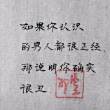 如果你认识
的男人都很正经，
那说明你确实
很丑